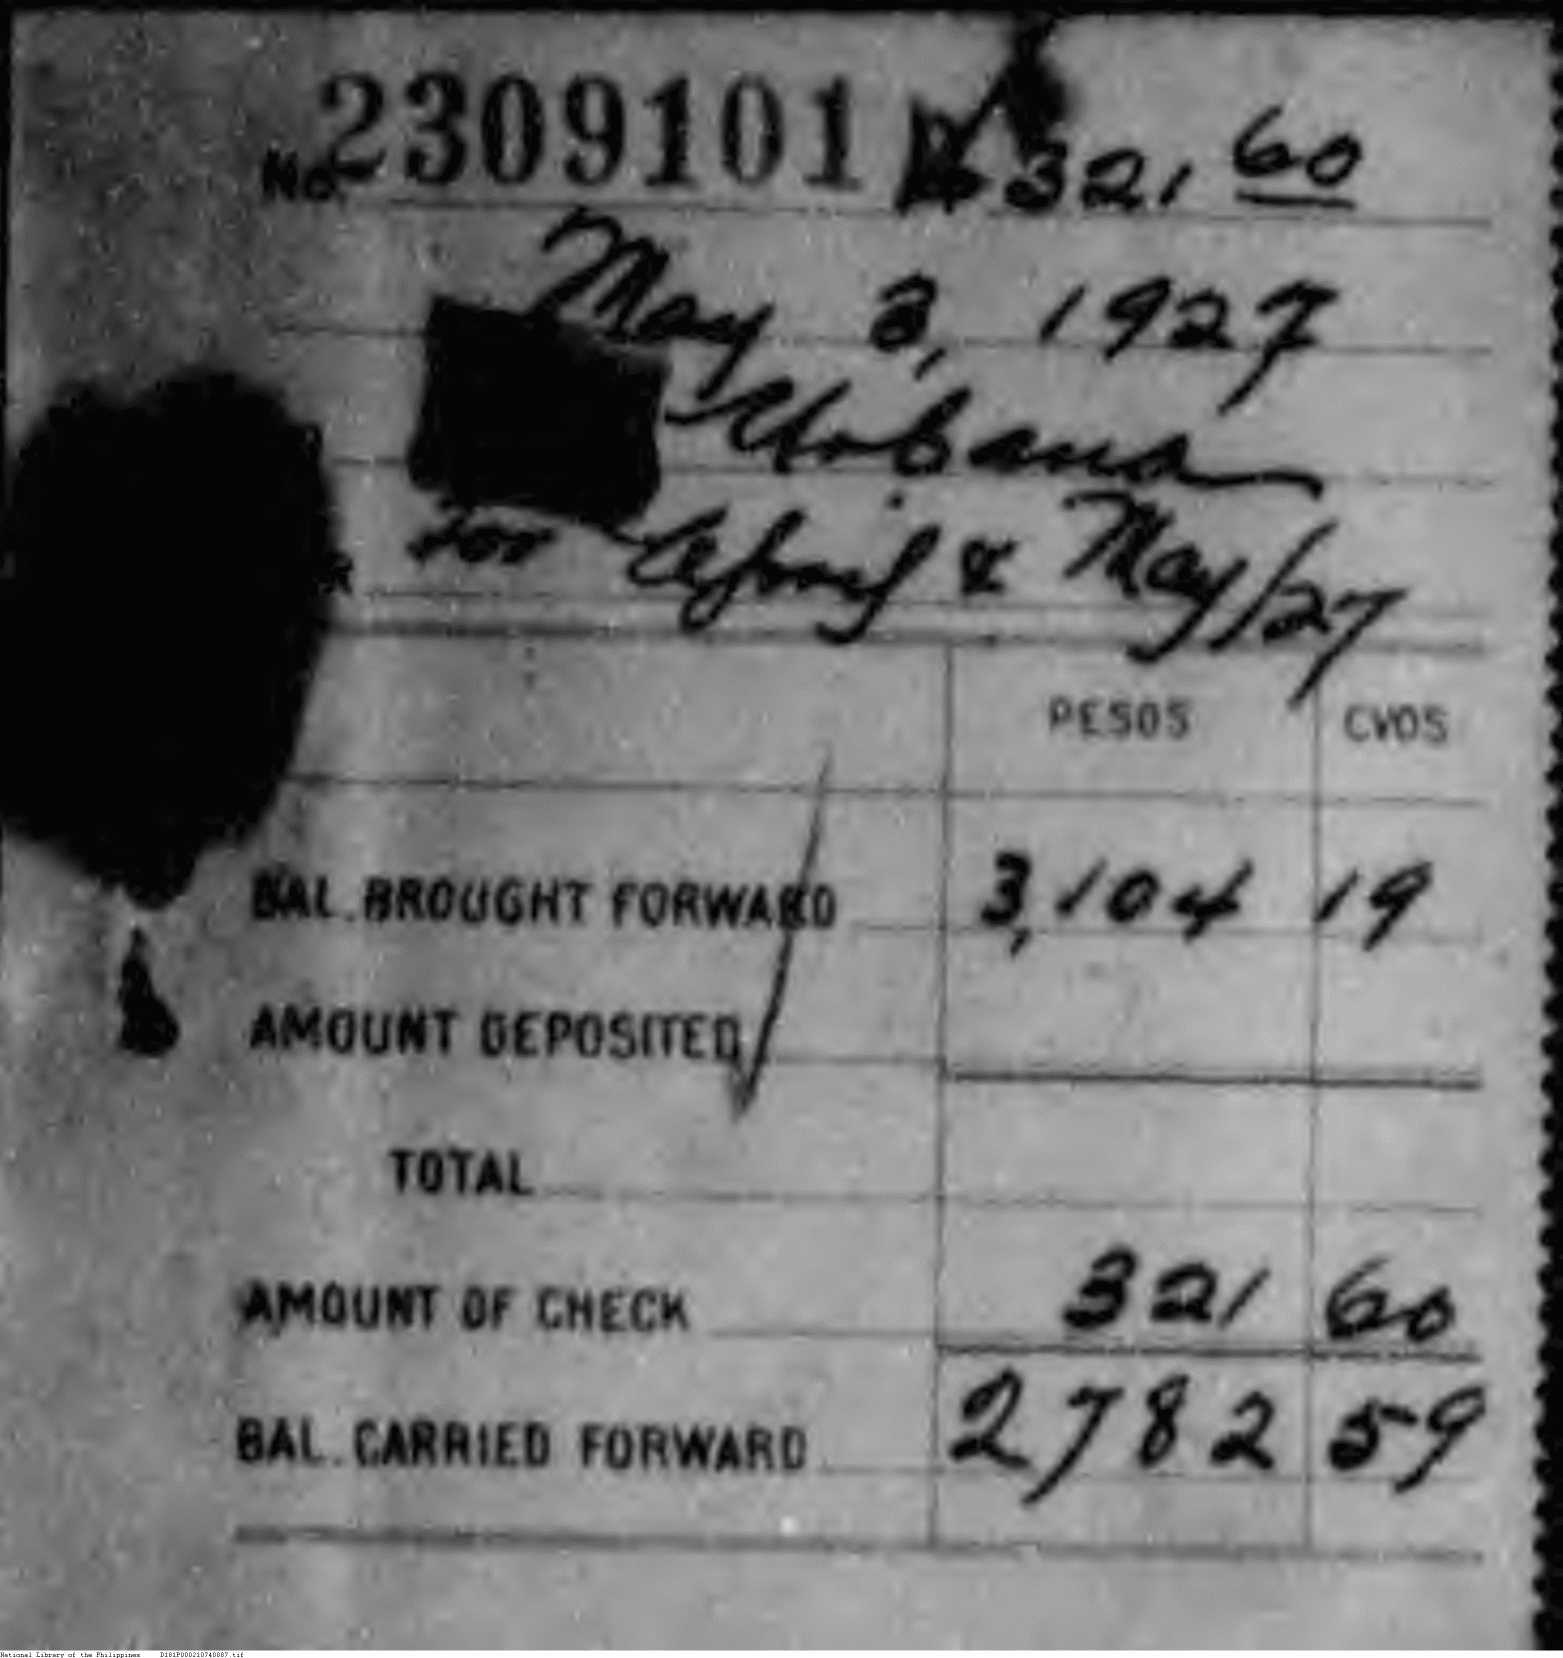 No. 2309101 ₱ 321, 60
May 3, 1927
Urbana
for April & May/27
PESOS CVOS
BAL. BROUGHT FORWARD 3,104 19
AMOUNT DEPOSITED
TOTAL
AMOUNT OF CHECK 321 60
BAL. CARRIED FORWARD 2782 59
National Library of the Philippines D181P000210740087.tif